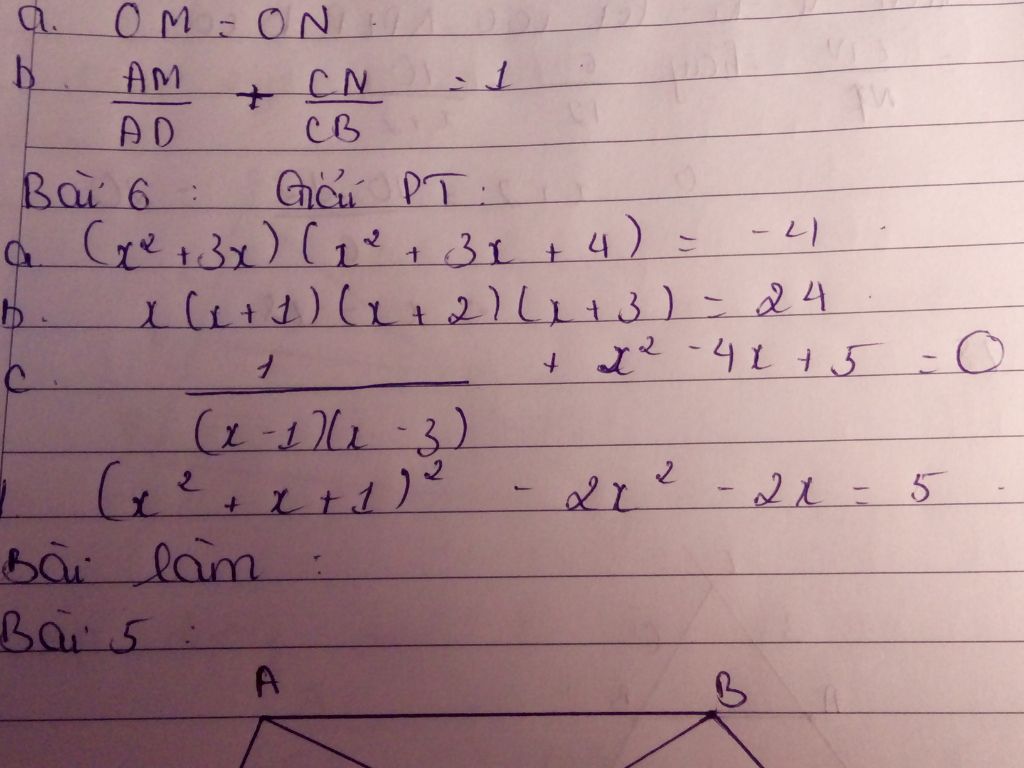 a. OM = ON
b. AM/AD + CN/CB = 1
Bài 6 : Giải PT :
a. (x² + 3x)(x² + 3x + 4) = -4
b. x(x+1)(x+2)(x+3) = 24
c. 1/((x-1)(x-3)) + x² - 4x + 5 = 0
(x² + x + 1)² - 2x² - 2x = 5
Bài làm :
Bài 5 :
A B